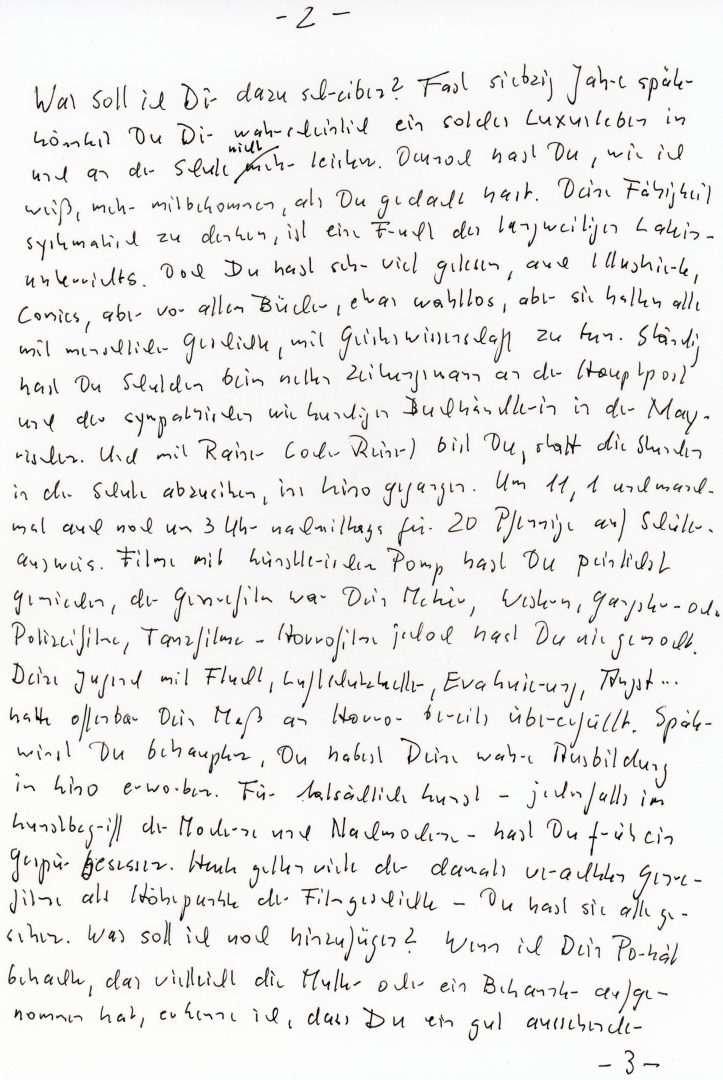 - 2 -
Was soll ich Dir dazu schreiben? Fast siebzig Jahre später
könntest Du Dir wahrscheinlich ein solches Luxusleben in
und an der Schule nicht mehr leisten. Dennoch hast Du, wie ich
weiß, mehr mitbekommen, als Du gedacht hast. Deine Fähigkeit
systematisch zu denken, ist eine Frucht des langweiligen Latein-
unterrichts. Doch Du hast sehr viel gelesen, auch Illustrierte,
Comics, aber vor allem Bücher, etwas wahllos, aber sie hatten alle
mit menschlicher Geschichte, mit Geisteswissenschaft zu tun. Ständig
hast Du Schulden beim netten Zeitungsmann an der Hauptpost
und der sympathischen wie kundigen Buchhändlerin in der May-
rischen. Und mit Rainer (oder Reiner) bist Du, statt die Stunden
in der Schule abzusitzen, ins Kino gegangen. Um 11, 1 und manch-
mal auch noch um 3 Uhr nachmittags für 20 Pfennige auf Schüler-
ausweis. Filme mit künstlerischem Pomp hast Du peinlichst
gemieden, der Genrefilm war Dein Metier, Western, Gangster- oder
Polizeifilme, Tanzfilme - Horrorfilme jedoch hast Du nie gemocht.
Deine Jugend mit Flucht, Luftschutzkeller, Evakuierung, Angst...
hatte offenbar Dein Maß an Horror bereits übererfüllt. Später
wirst Du behaupten, Du habest Deine wahre Ausbildung
im Kino erworben. Für tatsächliche Kunst - jedenfalls im
Kunstbegriff der Moderne und Nachmoderne - hast Du früh ein
Gespür besessen. Heute gelten viele der damals verachteten Genre-
filme als Höhepunkte der Filmgeschichte - Du hast sie alle ge-
sehen. Was soll ich noch hinzufügen? Wenn ich Dein Porträt
betrachte, das vielleicht die Mutter oder ein Bekannter aufge-
nommen hat, erkenne ich, dass Du ein gut aussehender
- 3 -